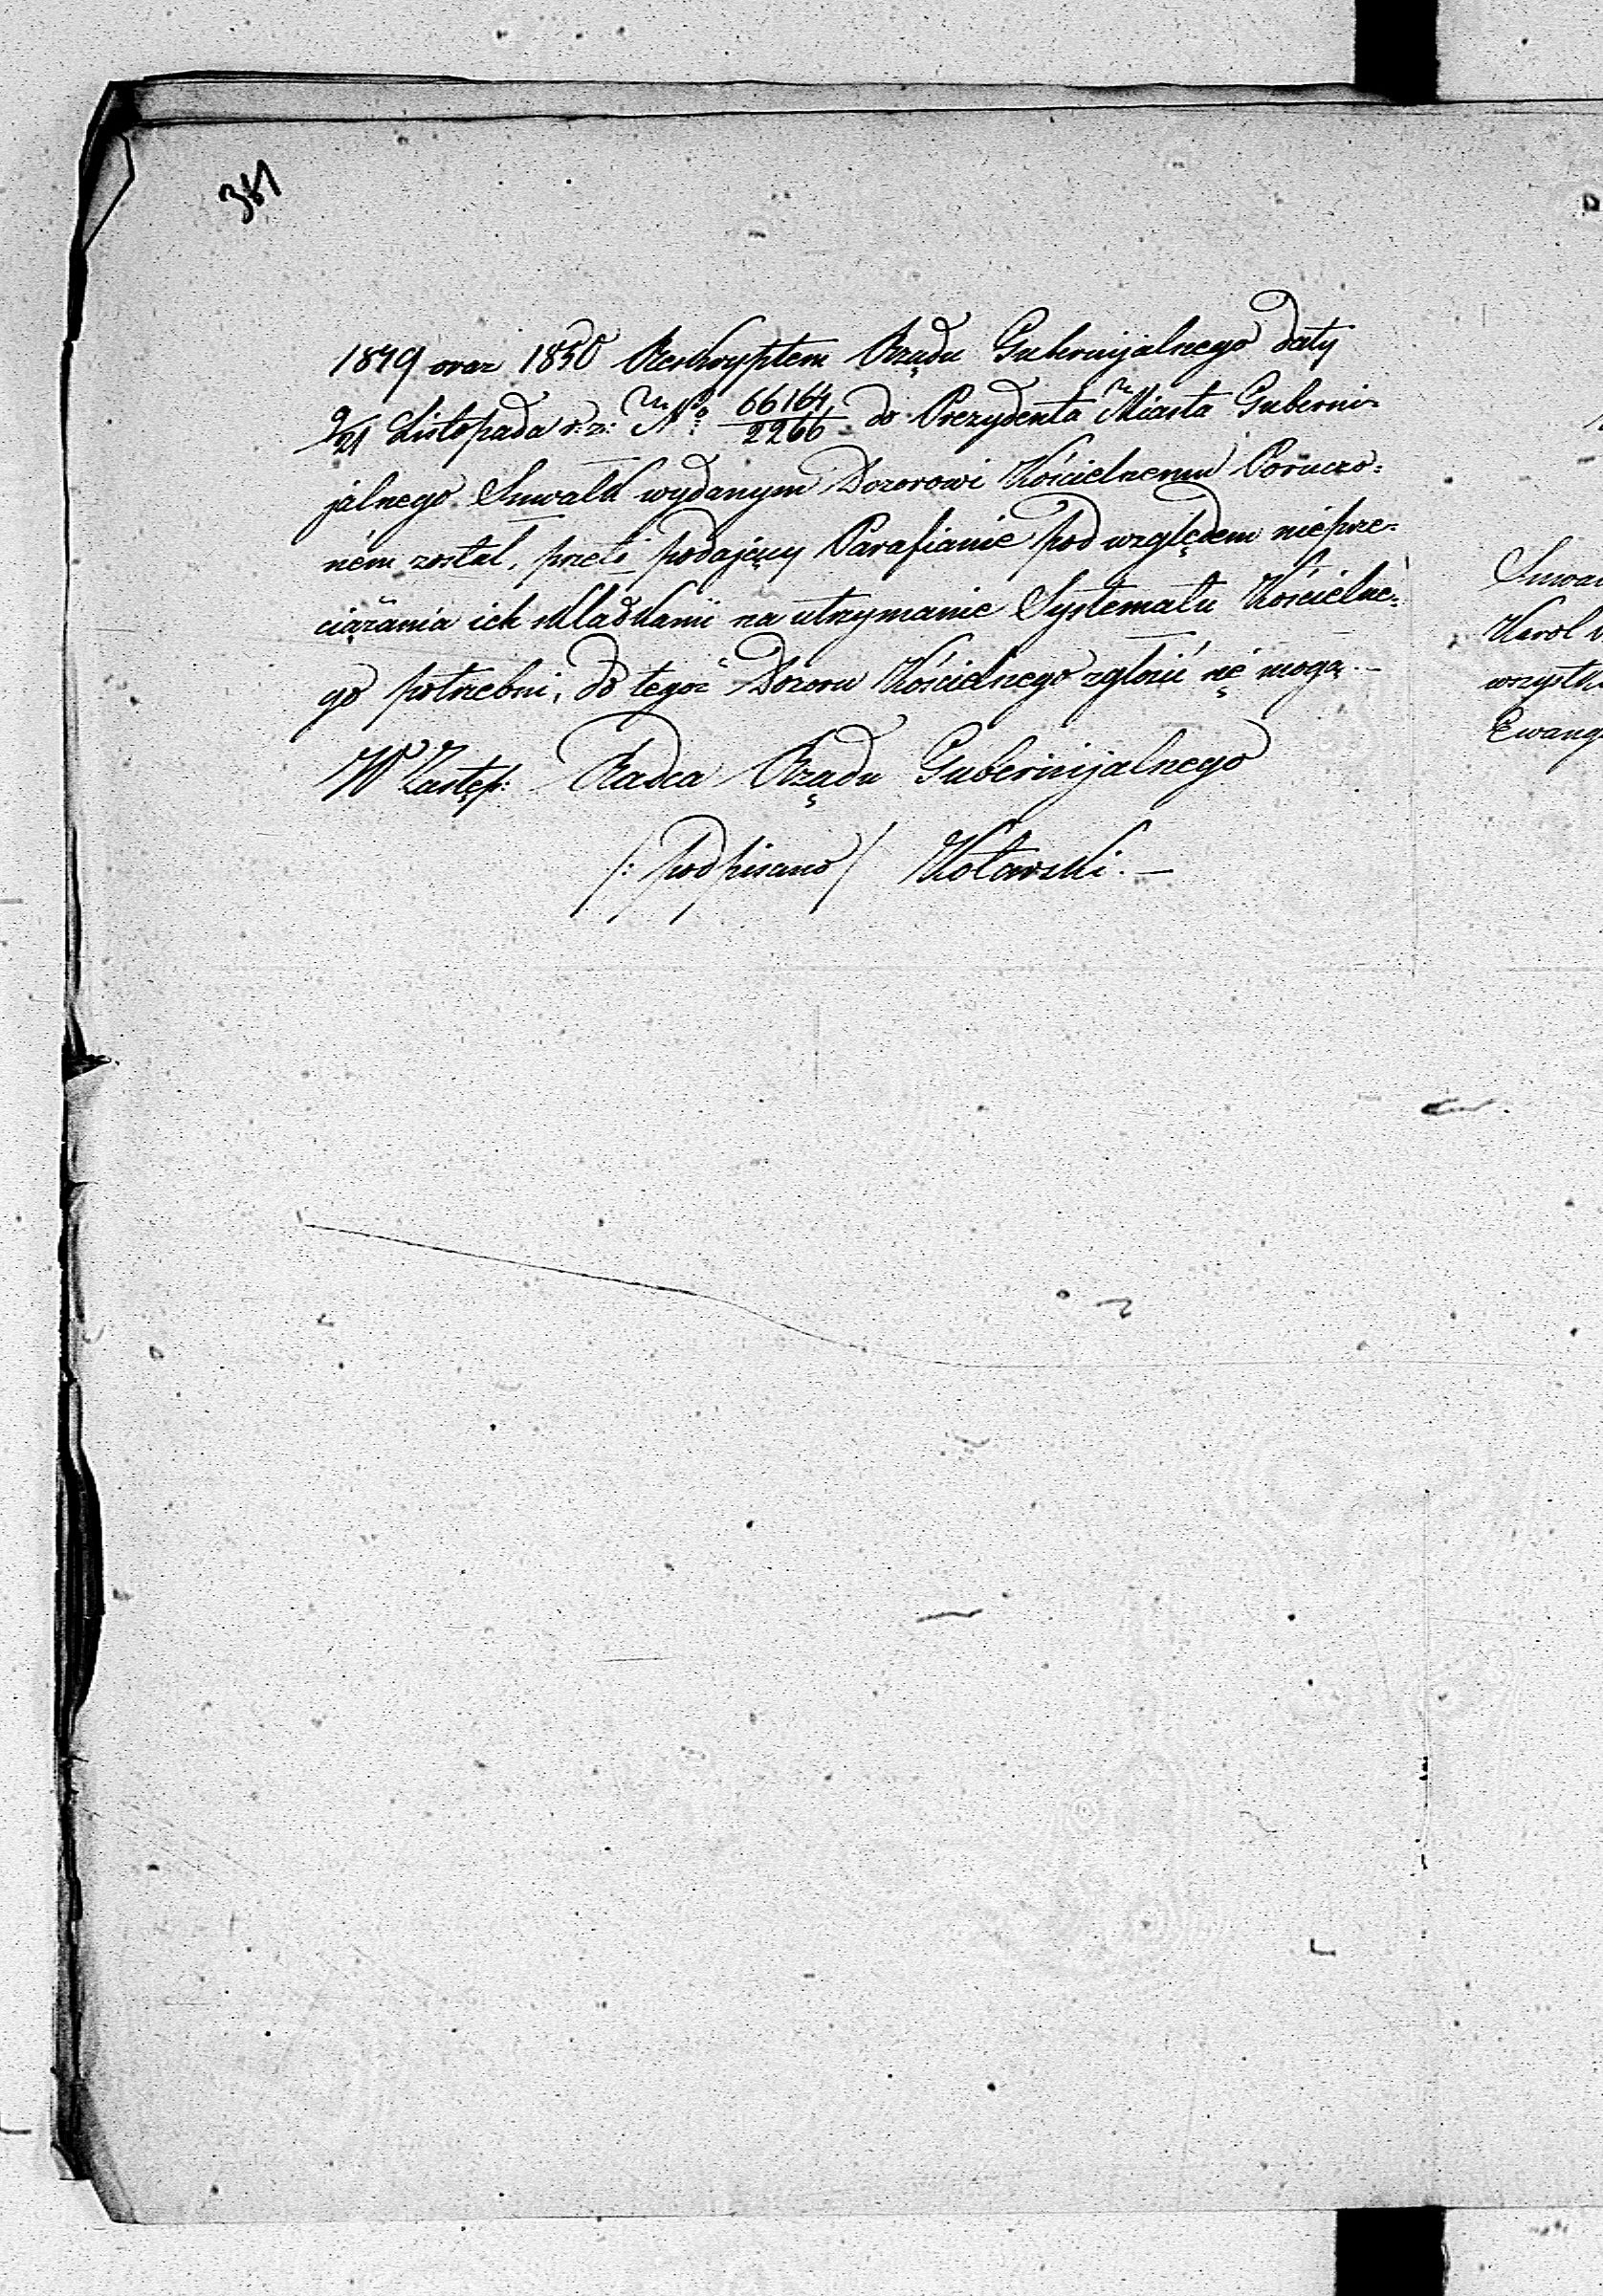 381
1849 oraz 1850 Reskryptem Rządu Gubernijalnego daty
9/21 Listopada r: z: No 66164/2266 do Prezydenta Miasta Guberni=
jalnego Suwałk wydanym Dozorowi Kościelnemu Poruczo=
ném został, przeto podający Parafianie pod względem nieprze=
ciążania ich składkami na utrzymanie Systematu Kościelne=
go potrzebni, do tegoż Dozoru Kościelnego zgłosić się mogą.—
W Zastęp: Radca Rządu Gubernijalnego
/: podpisano / Kotarski.—
Suwa
Karol
wszystk
Ewang